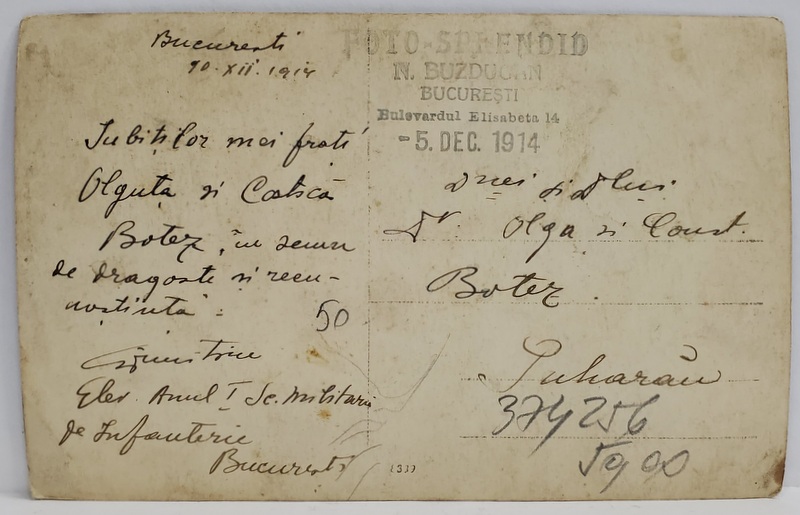 Bucuresti
10.XII.1914
Iubiților mei frați
Olguța si Costică
Botez, în semn
de dragoste si recu-
noștință:
Dumitriu
Elev Anul I Sc. Militară
de Infanterie
Bucuresti
FOTO-SPLENDID
N. BUZDUGAN
BUCUREȘTI
Bulevardul Elisabeta 14
-5. DEC. 1914
Dnei și Dlui
Dr. Olga si Const.
Botez.
Puharău
374256
50
5900